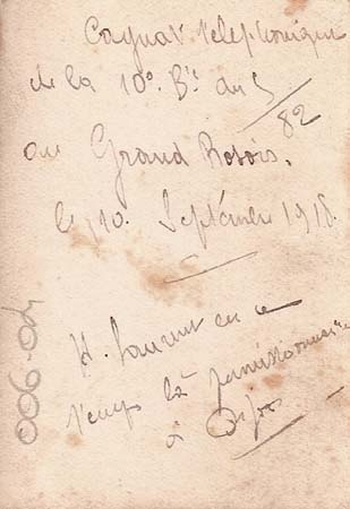 Cagnat téléphonique
de la 10e Bie du 5/82
au Grand Rozoir.
le 10 Septembre 1918.
H. Laurent en ce
temps là permissionnaire
à
006-04